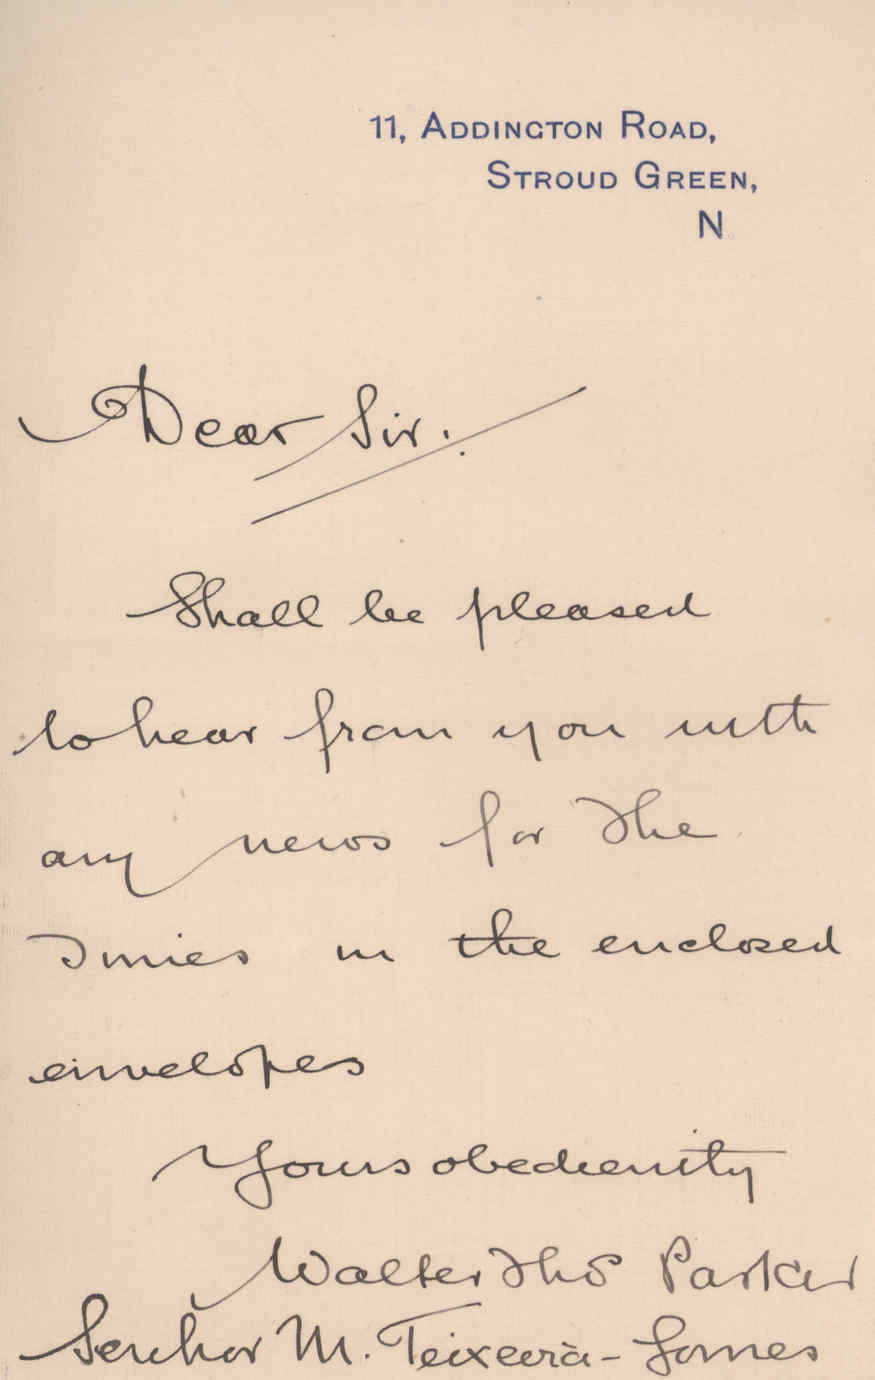 11, ADDINGTON ROAD,
STROUD GREEN,
N.
Dear Sir.
Shall be pleased
to hear from you with
any news for the
Times in the enclosed
envelopes
Yours obediently
Walter Thos Parker
Senhor M. Teixeira-Gomes